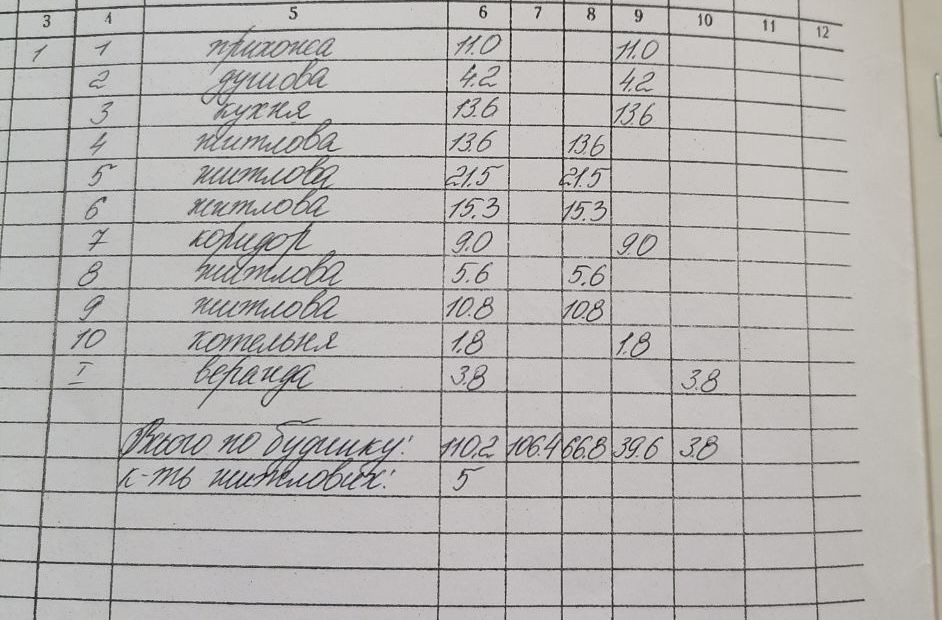 3 4 5 6 7 8 9 10 11 12
1 1 прихожа 11.0 11.0
2 душова 4.2 4.2
3 кухня 13.6 13.6
4 житлова 13.6 13.6
5 житлова 21.5 21.5
6 житлова 15.3 15.3
7 коридор 9.0 9.0
8 житлова 5.6 5.6
9 житлова 10.8 10.8
10 котельня 1.8 1.8
I веранда 3.8 3.8
Всього по будинку: 110.2 106.4 66.8 39.6 3.8
к-ть житлових: 5